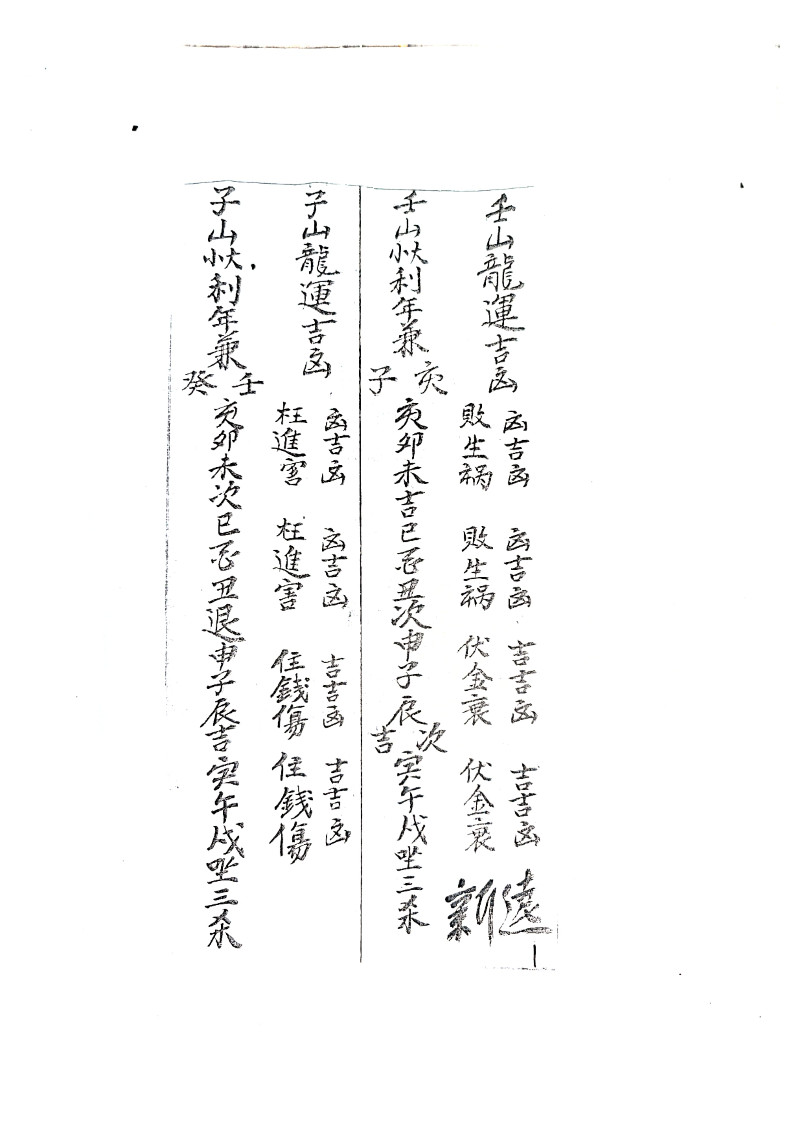 壬山龍運吉凶
凶吉凶 凶吉凶 吉吉凶 吉吉凶
敗生禍 敗生禍 伏金衰 伏金衰
新遠
1
壬山大小利年兼
亥
子
亥卯未吉巳忌丑次申子辰
次
吉
寅午戌坐三杀
子山龍運吉凶
凶吉凶 凶吉凶 吉吉凶 吉吉凶
枉進害 枉進害 住錢傷 住錢傷
子山大小利年兼
壬
癸
亥卯未次巳忌丑退申子辰吉寅午戌坐三杀